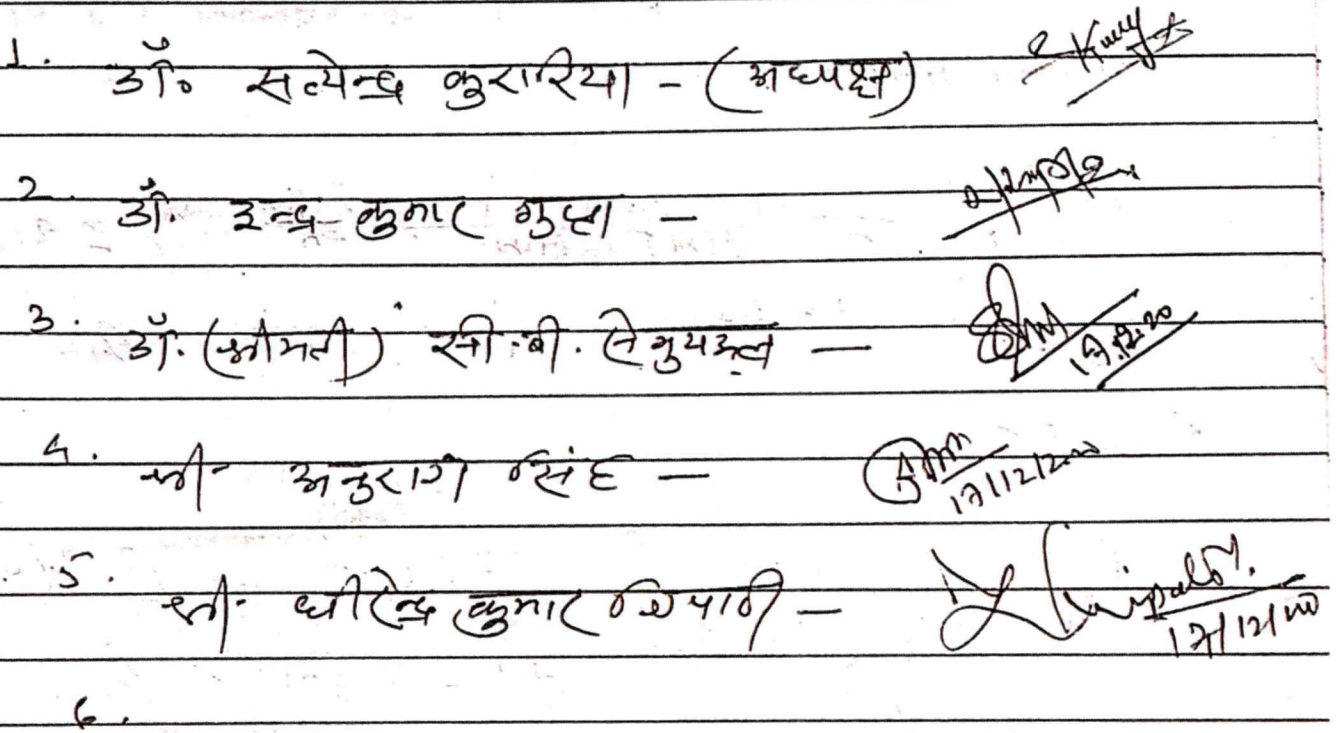 1. डॉ० सत्येन्द्र कुरारिया - (अध्यक्ष)
2. डॉ. इन्द्र कुमार गुप्ता -
3. डॉ. (श्रीमती) सी.बी. - 17.12.20
4. श्री अनुराग सिंह - 17/12/2020
5. श्री धीरेन्द्र कुमार त्रिपाठी - 17/12/20
6.